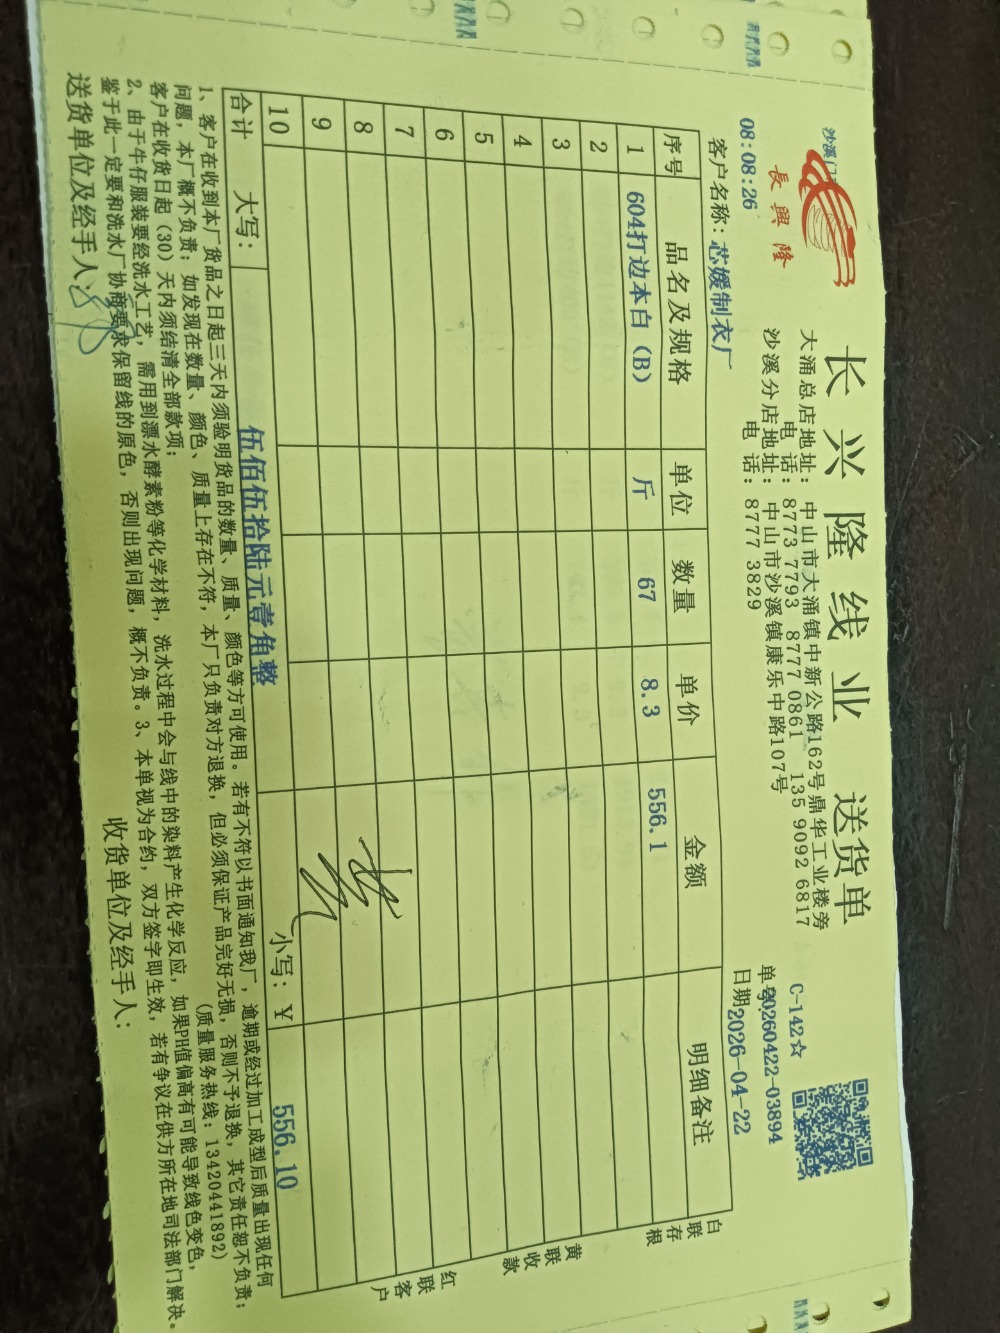 沙溪门
長興隆
长兴隆线业 送货单
大涌总店地址：中山市大涌镇中新公路162号鼎华工业楼旁
电话：8773 7793 8777 0861 135 9092 6817
沙溪分店地址：中山市沙溪镇康乐中路107号
电话：8777 3829
C-142☆
08:08:26
单号:20260422-03894
客户名称：芯媛制衣厂
日期2026-04-22
序号 品名及规格 单位 数量 单价 金额 明细备注
1 604打边本白（B） 斤 67 8.3 556.1
2
3
4
5
6
7
8
9
10
合计 大写： 伍佰伍拾陆元壹角整 小写：￥ 556.10
白联存根
黄联收款
红联客户
1、客户在收到本厂货品之日起三天内须验明货品的数量、质量、颜色等方可使用。若有不符以书面通知我厂，逾期或经过加工成型后质量出现任何
问题，本厂概不负责；如发现在数量、颜色、质量上存在不符，本厂只负责对方退换，但必须保证产品完好无损，否则不予退换，其它责任恕不负责；
客户在收货日起（30）天内须结清全部款项； （质量服务热线：13420441892）
2、由于牛仔服装要经洗水工艺，需用到漂水酵素粉等化学材料，洗水过程中会与线中的染料产生化学反应，如果PH值偏高有可能导致线色变色，
鉴于此一定要和洗水厂协商要求保留线的原色，否则出现问题，概不负责。3、本单视为合约，双方签字即生效，若有争议在供方所在地司法部门解决。
送货单位及经手人： 收货单位及经手人：